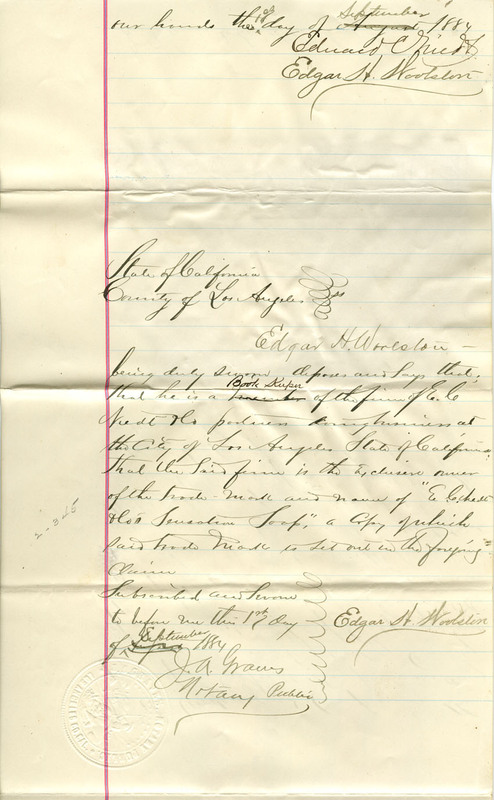 our hands the 1st day of September August 1884
Edward C Niedt
Edgar H. Woolston
State of California
County of Los Angeles ss
Edgar H. Woolston
being duly sworn deposes and says that,
that he is a Book Keeper member of the firm of E. C.
Niedt & Co doing business at
the City of Los Angeles State of California,
that the said firm is the Exclusive owner
of the trade-mark and name of "E. C. Niedt
& Co's Sensation Soap," a copy of which
said trade mark is set out in the forgoing
claim
Subscribed and Sworn
to before me this 1st day
of September 1884
Edgar H. Woolston
J. A. Graves
Notary Public
2-345